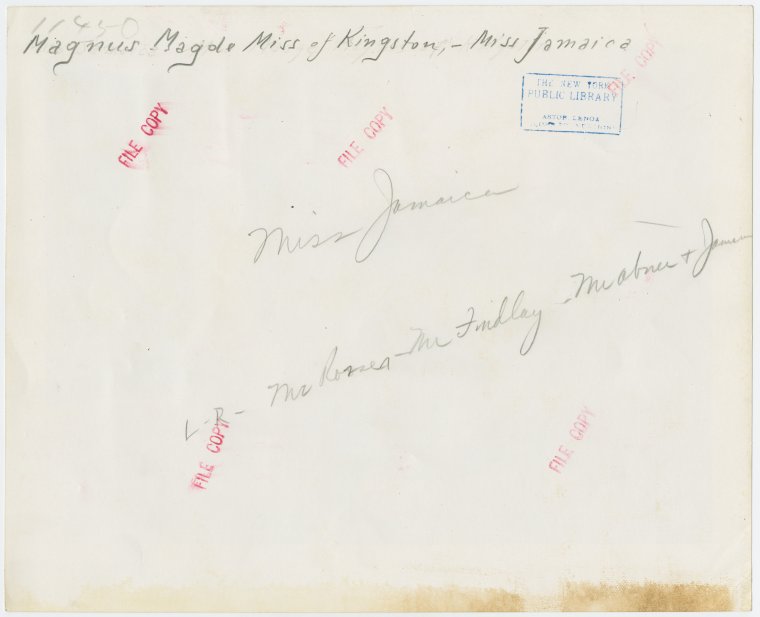 11450
Magnus Magde Miss of Kingston, - Miss Jamaica
THE NEW YORK
PUBLIC LIBRARY
ASTOR LENOX
FILE COPY
FILE COPY
FILE COPY
Miss Jamaica
L-R- Mr Mr Findlay - Mr Abner +
FILE COPY
FILE COPY